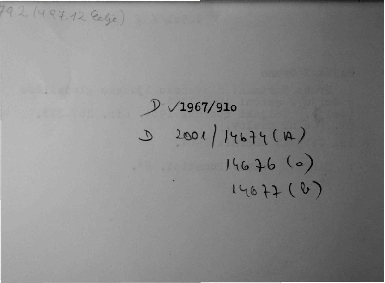 792(497.12 Celje)
D √1967/910
D 2001/14674(A)
14676(a)
14677(b)